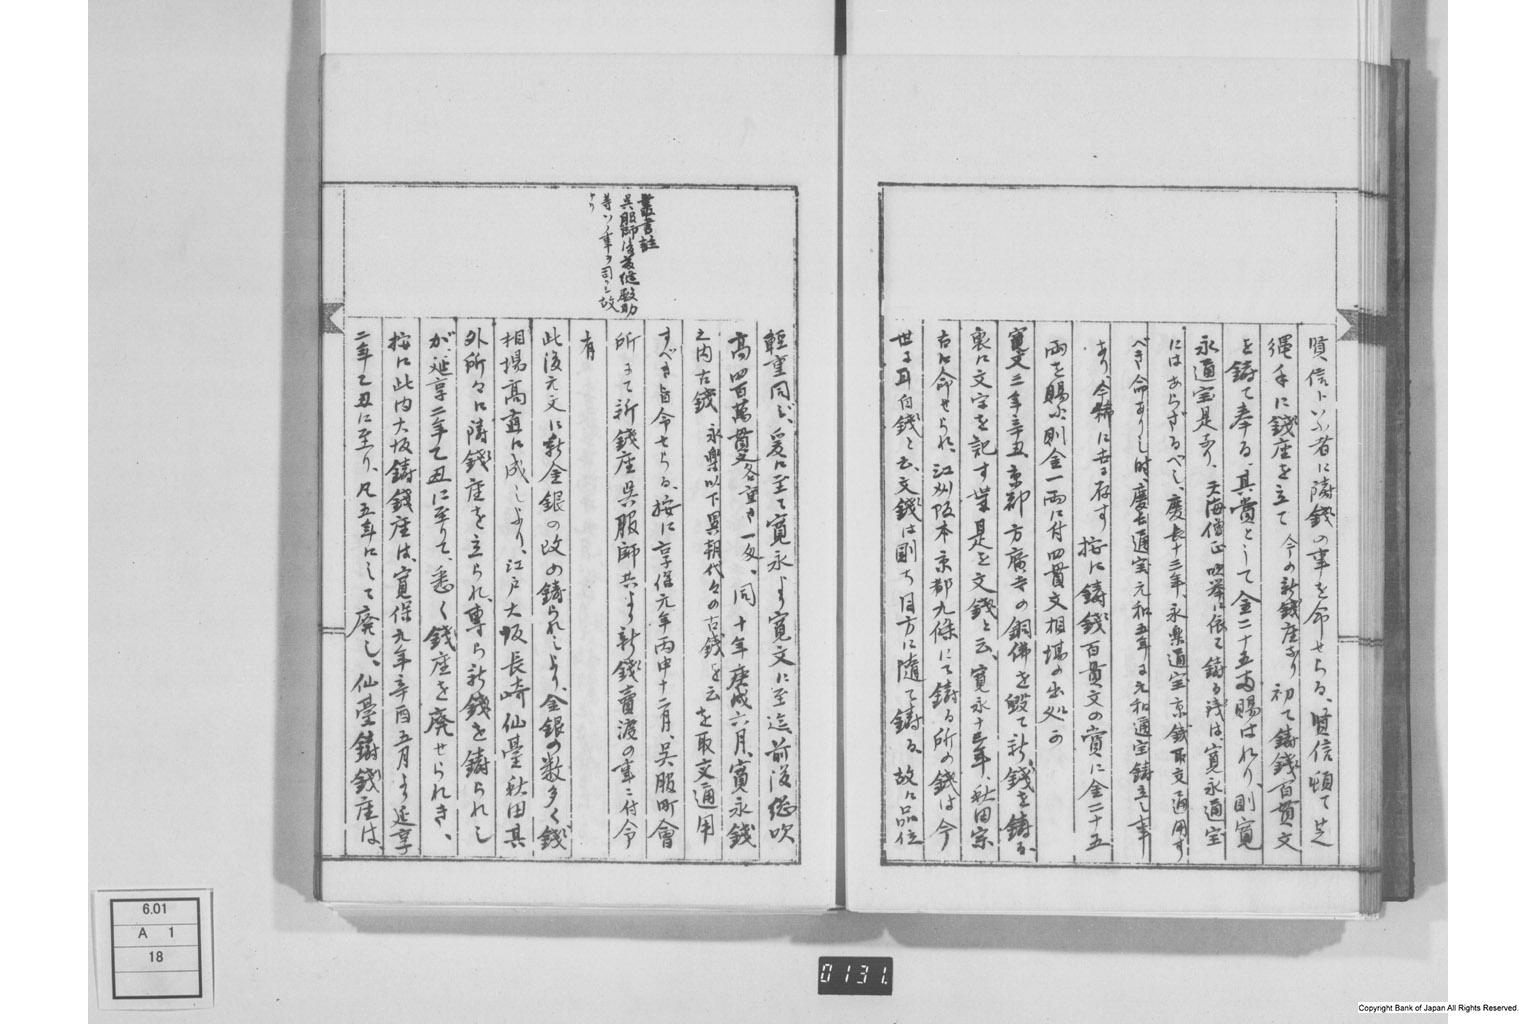 賢信トいふ者に鋳銭の事を命せらる、賢信頓て芝
縄手に銭座を立て 今の新銭座なり 初て鋳銭百貫文
を鋳て奉る、其賞として金二十五両賜はれり、則寛
永通宝是なり、天海僧正吹挙に依て鋳る銭は寛永通宝
にはあらざるべし、慶長十三年、永楽通宝京銭取交通用す
べき命ありし時、慶長通宝元和五年る元和通宝鋳立し事
あり、今稀に世に存す 按に鋳銭百貫文の賞に金二十五
両を賜ふ、則金一両に付四貫文相場の出処か
寛文三年辛丑、京都方廣寺の銅佛を毀て新銭を鋳る、
裏に文字を記す 世是を文銭と云、寛永十三年、秋田宗
古に命せられ、江州阪本京都九條にて鋳る所の銭は今
世る耳白銭と云、文銭は則ち目方に随て鋳る、故に品位
叢書註
呉服師後藤縫殿助
等ソノ事ヲ司シ故
ナリ
軽重同じ、爰に至て寛永より寛文に至迄前後惣吹
高四百萬貫文各重さ一匁、同十年庚戌六月、寛永銭
之内古銭 永楽以下異朝代々の古銭を云 を取交通用
すべき旨令せらる、按に享保元年丙申十二月、呉服町會
所にて新銭座呉服師共より新銭賣渡の事ニ付令
有
此後元文に新金銀の改め鋳られしより、金銀の数多く銭
相場高直に成しより、江戸大坂長崎仙臺秋田其
外所々に鋳銭座を立られ、専ら新銭を鋳られし
が、延享二年乙丑に至りて、悉く銭座を廃せられき、
按に此内大坂鋳銭座は、寛保元年辛酉五月より延享
二年乙丑に至り、凡五年にして廃し、仙臺鋳銭座は、
6.01
A 1
18
0131.
Copyright Bank of Japan All Rights Reserved.